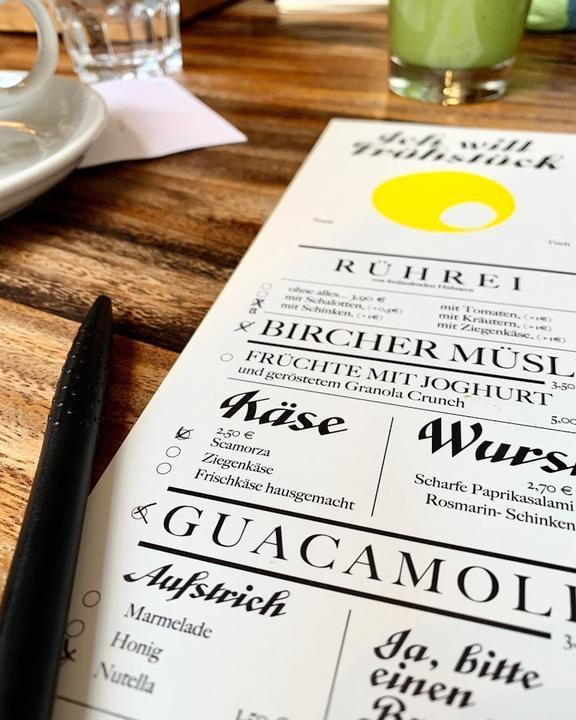 Ich will
Frühstück
Name
Tisch
RÜHREI
von freilaufenden Hühnern
ohne alles... 3,90 €
mit Schalotten, (+0,5€)
mit Schinken, (+1€)
mit Tomaten, (+1€)
mit Kräutern, (+1€)
mit Ziegenkäse, (+1€)
BIRCHER MÜSL
3,50
FRÜCHTE MIT JOGHURT
und geröstetem Granola Crunch
5,00
Käse
2,50 €
Scamorza
Ziegenkäse
Frischkäse hausgemacht
Wurs
2,70 €
Scharfe Paprikasalami
Rosmarin- Schinken
GUACAMOL
Aufstrich
Marmelade
Honig
Nutella
Ja, bitte
einen